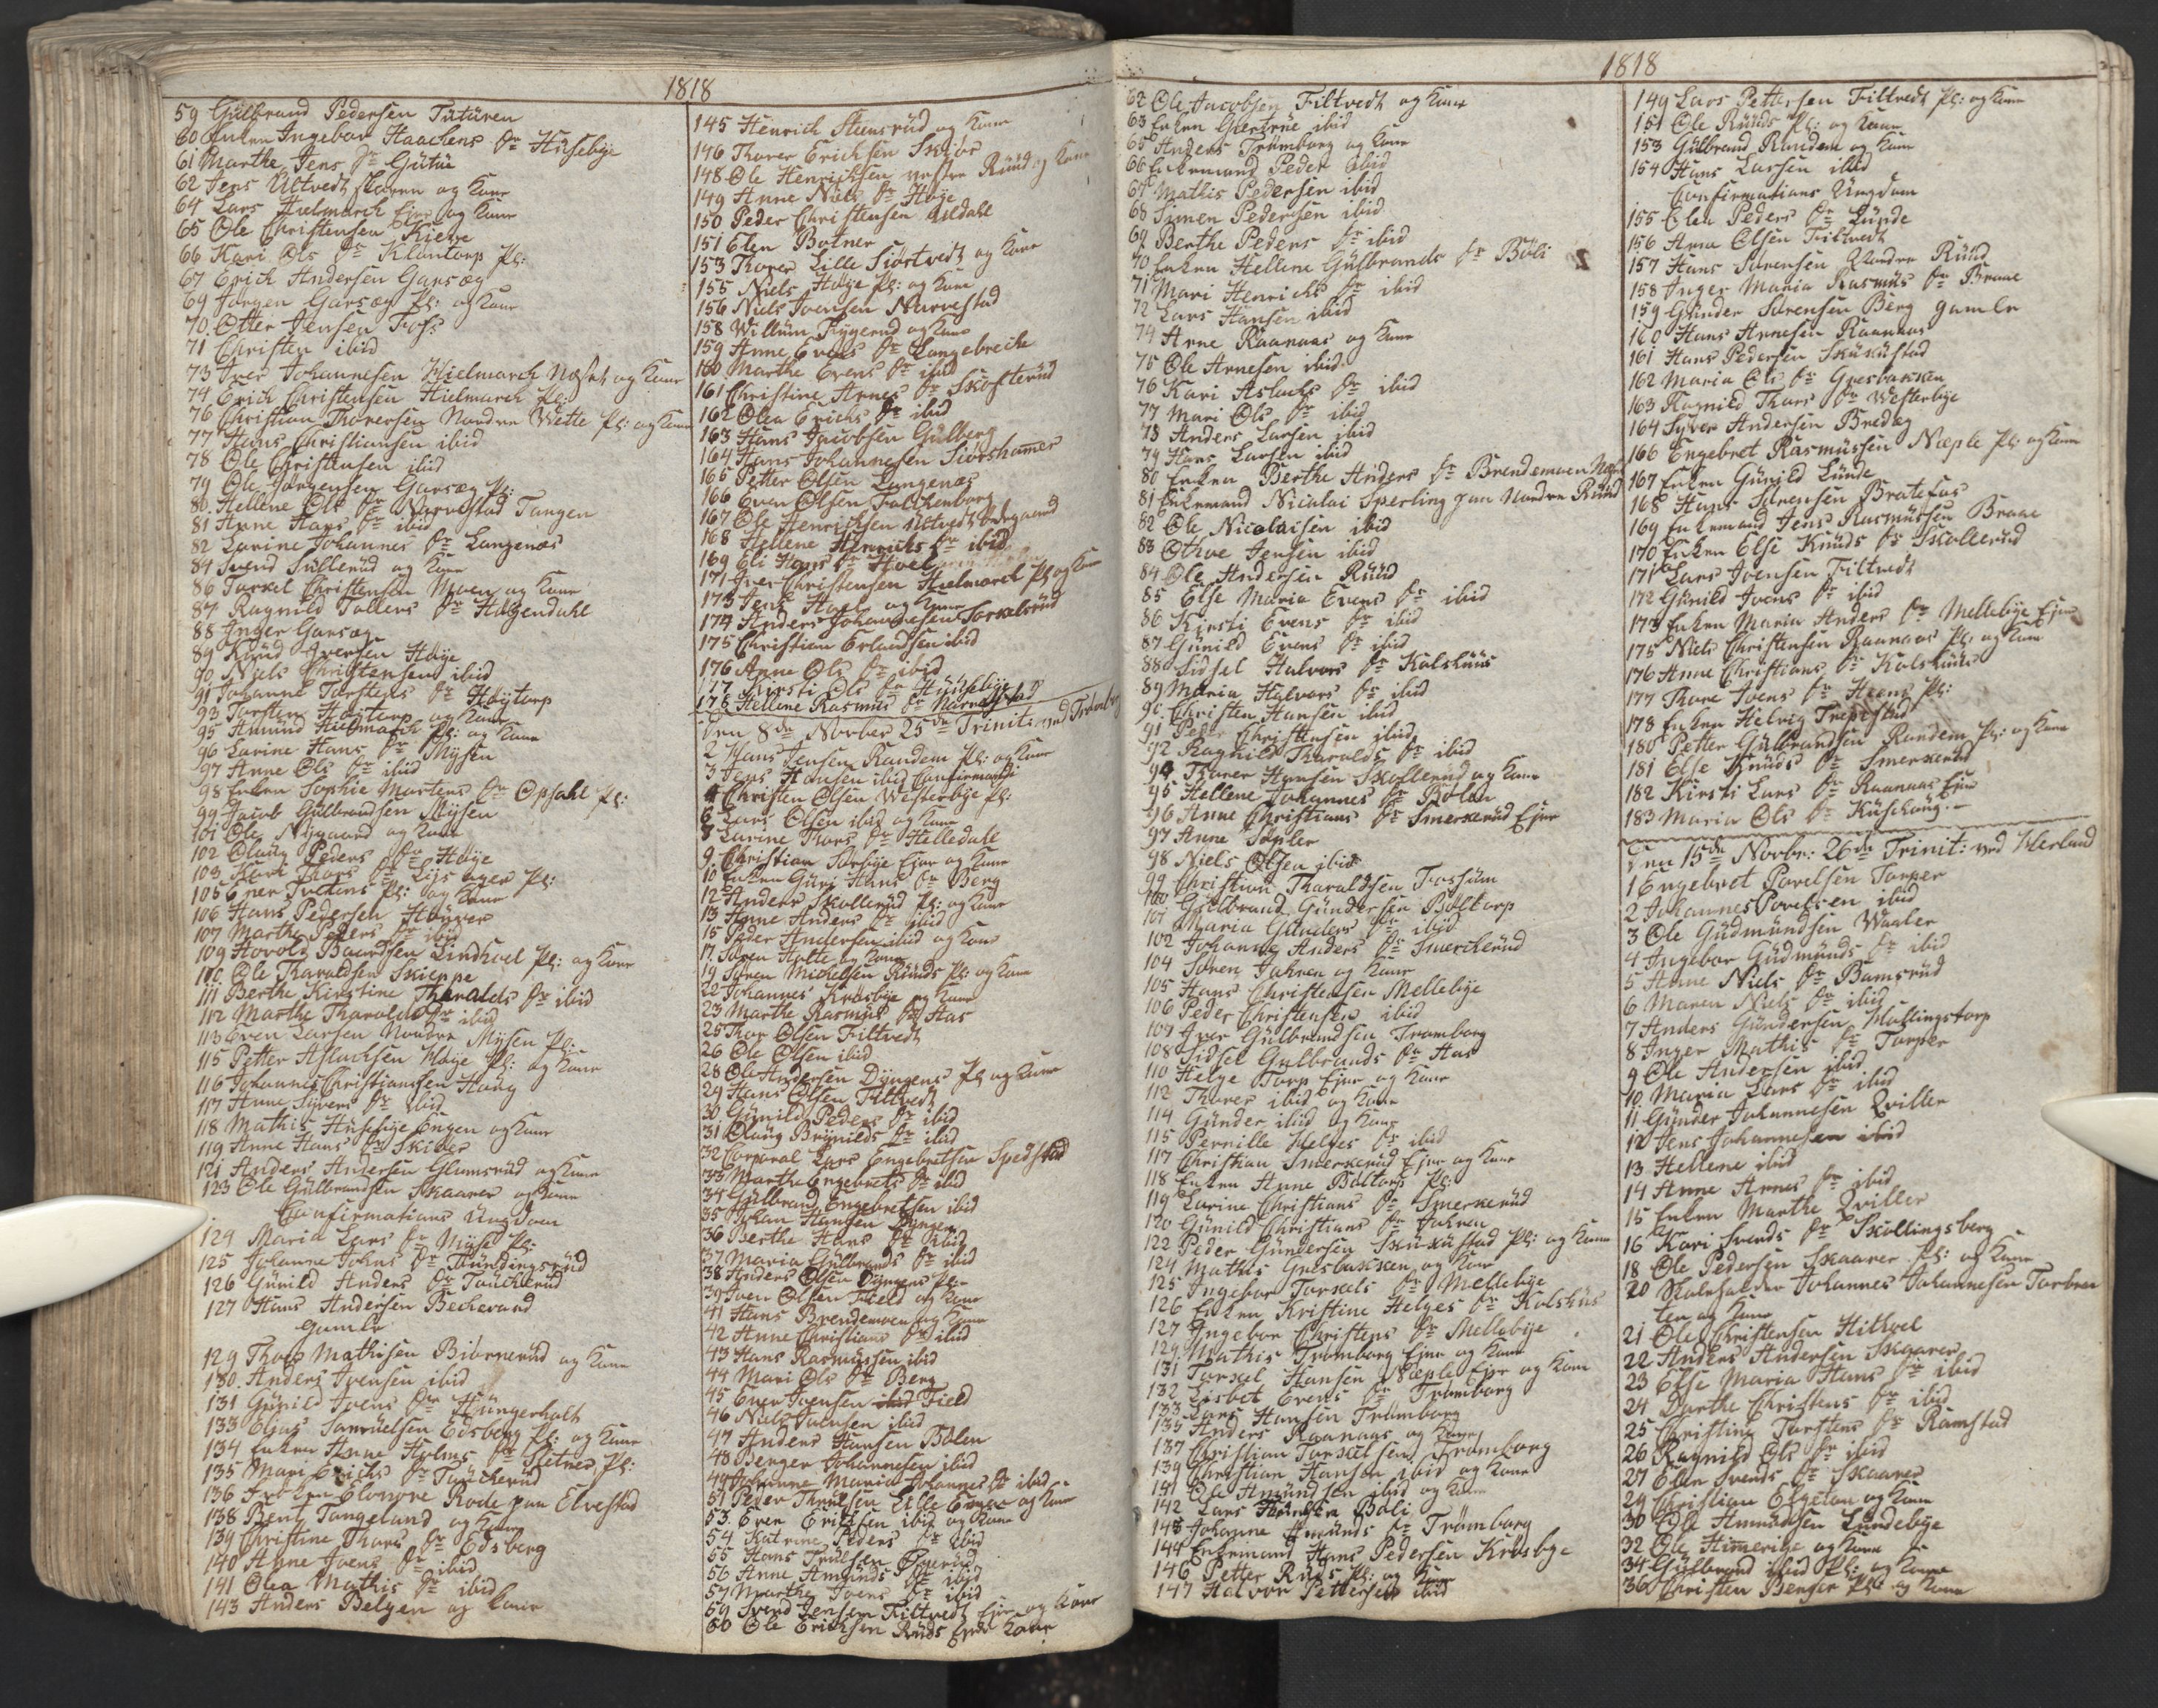 1818
59 Gülbrand Pedersen Tütüren
60 Enken Ingebor Haachens Dr Hüsebye
61 Marthe Jens Dr Gütüe
62 Jens Ültvedt skoven og Kone
64 Lars Hielmarch Ejer og Kone
65 Ole Christensen Kierre
66 Kari Ols Dr Klontorp Pl:
67 Erich Andersen Garsæg
69 Jørgen Garsæg Pl: og Kone
70. Otter Jensen Foss
71 Christen ibid
73 Iver Johannesen Hielmarch Næset og Kone
74 Erich Christensen Hielmarch Pl:
76 Christian Thoresen Nordre Wette Pl: og Kone
77 Hans Christiansen ibid
78 Ole Christensen ibid
79 Ole Jørgensen Garsæg Pl:
80. Hellene Ols Dr Narvestad Tangen
81 Anne Hans Dr ibid
82 Larine Johannes Dr Langenæs
84 Svend Sülterüd og Kone
86 Torkel Christensen Moen og Kone
87 Ragnild Tollers Dr Halgendahl
88 Inger Garsæg
89 Knüd Iversen Høye
90 Niels Christensen ibid
91 Johanne Torstens Dr Høytorp
93 Torsten Høytorp og Kone
95 Amund Hielmarch Pl: og Kone
96 Larine Hans Dr Mysen
97 Anne Ols Dr ibid
98 Enken Sophie Mortens Dr Opsahl Pl:
99 Jacob Gülbrandsen Mysen
101 Ole Nygaard og Kone
102 Olaüg Peders Dr Høye
103 Kari Thors Dr Lysager Pl:
105 Ener Pl: og Kone
106 Hans Pedersen Høyver
107 Marthe Peders Dr ibid
109 Hovold Baardsen Lindhoel Pl: og Kone
110 Ole Tharaldsen Skieppe
111 Berthe Kirstine Tharalds Dr ibid
112 Marthe Tharalds Dr ibid
113 Even Larsen Nordre Mysen Pl:
115 Petter Aslachsen Høye Pl: og Kone
116 Johannes Christiansen Haüg
117 Anne Syvers Dr ibid
118 Mathis Hüsebye Engen og Kone
119 Anne Hans Dr Skiver
121 Anders Andersen Glomsrüd og Kone
123 Ole Gülbrandsen Skaarer og Kone
Confirmations Üngdom
124 Maria Lars Dr Myse Pl:
125 Johanne Johns Dr Ründingsrüd
126 Günild Anders Dr Toücherüd
127 Hans Andersen Bechevard
Gamle
129 Thor Mathisen Biørnerüd og Kone
130. Anders Ivensen ibid
131 Günild Joens Dr Hüngerholt
133 Elias Samüelsen Edsberg Pl: og Kone
134 Enken Anne Holms Dr Sletner Pl:
135 Mari Erichs Dr Toücherüd
136 Frøken Elonore Rode paa Elvestad
138 Bent Tangeland og Kone
139 Christine Thors Dr Edsberg
140 Anne Joens Dr ibid
141 Olea Mathis Dr ibid
143 Anders Belgen og Kone
145 Henrich Steensrüd og Kone
146 Thorer Erichsen Skiør
148 Ole Henrichsen vestre Rüüd og Kone
149 Anne Niels Dr Høye
150 Peder Christensen Guldahl
151 Elen Botner
153 Thorer Lille Siortvedt og Kone
155 Niels Høye Pl: og Kone
156 Niels Ivensen Narvestad
158 Willüm Rygerud og Kone
159 Anne Evens Dr Langebreche
160 Marthe Evens Dr ibid
161 Christine Arnes Dr Skofterüd
162 Olea Erichs Dr ibid
163 Hans Jacobsen Gülberg
164 Hans Johannesen Siørshamer
165 Petter Olsen Langenæs
166 Even Olsen Falchenborg
167 Ole Henrichsen Ultvedt Ødegaard
168 Hellene Henrichs Dr ibid
169 Eli Hans Dr Hoel
171 Iver Christensen Hielmarch Pl: og Kone
173 Jens Hoel og Kone
174 Anders Johannesen Torkelsrüd
175 Christian Erlandsen ibid
176 Anne Ols Dr ibid
177 Kirsti Ols Dr Hüüsebye
178 Hellene Rasmüs Dr Narvestad
Den 8de Novber 25de Trinit: ved Trømborg
2 Hans Jensen Randem Pl: og Kone
3 Jens Hansen ibid Confirmandi
4 Christen Olsen Westerbye Pl:
6 Lars Olsen ibid og Kone
8 Larine Thors Dr Helledahl
9. Christian Sæbye Ejer og Kone
10 Enken Güri Hans Dr Berg
12 Anders Skollerüd Pl: og Kone
13 Anne Anders Dr ibid
15 Peder Andersen ibid og Kone
17. Søren Holte og Kone
19 Søren Michelsen Rüüds Pl: og Kone
22 Johannes Krosbye og Kone
23 Marthe Rasmüs Dr Aas
25 Thor Olsen Filtvedt
26 Ole Olsen ibid
28 Ole Andersen Dyngens Pl: og Kone
29 Hans Olsen Filtvedt
30 Günild Peders Dr ibid
31 Olaüg Brynilds Dr ibid
32 Corporal Lars Engebretsen Spedstad
33 Marthe Engebrets Dr ibid
34 Gülbrand Engebretsen ibid
35 Johan Hansen Dyngen
36 Berthe Hans Dr ibid
37 Maria Gülbrands Dr ibid
38 Anders Olsen Dyngens Pl:
39 Iven Olsen Field og Kone
41 Hans Brendemoen og Kone
42 Anne Christians Dr ibid
43 Hans Rasmüssen ibid
44 Mari Ols Dr Berg
45 Ener Ivensen ibid Field
46 Niels Ivensen ibid
47 Anders Hansen Bølen
48 Berger Johannesen ibid
49 Johanne Maria Johannes Dr ibid
51 Peder Thrülsen Lille og Kone
53. Even Erichsen ibid og Kone
54 Katrine Peders Dr ibid
55 Hans Trülsen
56 Anne Amünds Dr ibid
57 Marthe Joens Dr ibid
59 Svend Jensen Filtvedt Ejer og Kone
60 Ole Erichsen Rüds Ejer Kone
1818
62 Ole Jacobsen Filtvedt og Kone
63 Enken Giertrüe ibid
65 Anders Trømborg og Kone
66 Enkemand Peder ibid
67 Mathis Pedersen ibid
68 Simen Pedersen ibid
69 Berthe Peders Dr ibid
70 Enken Hellene Gülbrands Dr Bøli
71 Mari Henrichs Dr ibid
72 Lars Hansen ibid
74 Arne Raanaas og Kone
75 Ole Arnesen ibid
76 Kari Aslachs Dr ibid
77 Mari Ols Dr ibid
78 Anders Larsen ibid
79 Hans Larsen ibid
80 Enken Berthe Anders Dr Brendemoen
81 Enkemand Nicolai Sperling paa Nordre Rüüd
82 Ole Nicolaisen ibid
83 Othoe Jensen ibid
84 Ole Andersen Rüüd
85 Else Maria Evens Dr ibid
86 Kirsti Evens Dr ibid
87 Günild Evens Dr ibid
88 Sidsel Halvors Dr Kolshüüs
89 Maria Halvors Dr ibid
90 Christen Hansen ibid
91 Peder Christensen ibid
92 Ragnild Tharalds Dr ibid
94 Thorer Hansen Skollerüd og Kone
95 Hellene Johannes Dr Bølen
96 Anne Christians Dr Smerkerüd Ejer
97 Anne Sæpler
98 Niels Olsen ibid
99 Christian Tharaldsen Fossüm
100 Gülbrand Gündersen Boltorp
101 Maria Günders Dr ibid
102 Johanne Anders Dr Smerckerüd
104 Søren Jahren og Kone
105 Hans Christensen Mellebye
106 Peder Christensen ibid
107 Iver Gülbrandsen Trømborg
108 Sidsel Gulbrands Dr Aas
110 Helge Torp Ejer og Kone
112 Thorer ibid og Kone
114 Günder ibid og Kone
115 Pernille Helges Dr ibid
117 Christian Smerkerüd Ejer og Kone
118 Enken Anne Boltorp Pl:
119 Larine Christians Dr Smerkerüd
120 Günild Christians Dr Jahren
122 Peder Gündersen Sküküstad Pl: og Kone
124 Mathis Gresbakken og Kone
125 Ingebor Torkels Dr Mellebye
126 Enken Kristine Helges Dr Kolshüs
127 Ingebor Christens Dr Mellebye
129 Mathis Trømborg Ejer og Kone
131 Torkel Hansen Næple Ejer og Kone
132 Lisbet Evens Dr Trømborg
133 Lars Hansen Trømborg
135 Anders Raanaas og Kone
137 Christian Torkelsen Trømborg
139 Christian Hansen ibid og Kone
141 Ole Amündsen ibid og Kone
142 Lars Bøli
143 Johanne Amünds Dr Trømborg
144 Enkemand Hans Pedersen Krosbye
146 Petter Rüds Pl: og Kone
147 Halvor Pettersen ibid
149 Lars Pettersen Filtvedt Pl: og Kone
151 Ole Rüüds Pl: og Kone
153 Gülbrand Randem og Kone
154 Hans Larsen ibid
Confirmations Üngdom
155 Elen Peders Dr Lünde
156 Arne Olsen Filtvedt
157 Hans Sørensen Nordre Rüüd
158 Inger Maria Rasmüs Dr Braae
159 Günder Sørensen Berg Gamle
160 Hans Arnesen Raanaas
161 Hans Pedersen Sküküstad
162 Maria Ols Dr Gresbakken
163 Ragnild Thors Dr Westerbye
164 Syver Andersen Bredeg
166 Engebret Rasmüssen Næple Pl: og Kone
167 Enken Günild Lünde
168 Hans Sørensen Bratefos
169 Enkemand Jens Rasmüssen Braae
170 Enken Else Knüds Dr Skollerüd
171 Lars Ivensen Filtvedt
172 Günild Joens Dr ibid
173 Enken Maria Anders Dr Mellebye Ejer
175 Niels Christensen Raanaas Pl: og Kone
176 Anne Christians Dr Kolshüüs
177 Thore Joens Dr Pl:
178 Enken Helvig Trepstad
180 Petter Gülbrandsen Randem Pl: og Kone
181 Else Knüds Dr Smerkerüd
182 Kirsti Lars Dr Raanaas Ejer
183 Maria Ols Dr Küshaüg
Den 15de Novbr: 26de Trinit: ved Herland
1 Engebret Povelsen Torper
2 Johannes Povelsen ibid
3 Ole Güdmündsen Waaler
4 Ingebor Güdmünds Dr ibid
5 Anne Niels Dr Bamsrüd
6 Maren Niels Dr ibid
7 Anders Gündersen Mallingstorp
8 Inger Mathis Dr Torper
9 Ole Andersen ibid
10 Maria Lars Dr ibid
11 Günder Johannesen Qviller
12 Jens Johannesen ibid
13 Hellene ibid
14 Anne Arnes Dr ibid
15 Enken Marthe Qviller
16 Kari Svends Dr Skollingsberg
18 Ole Pedersen Skaarer Pl: og Kone
20 Skoleholder Johannes Johannesen Torbraa
ten og Kone
21 Ole Christensen Hithoel
22 Anders Andersen Skaarer
23 Else Maria Hans Dr ibid
24 Dorthe Christens Dr ibid
25 Christine Torstens Dr Ramstad
26 Ragnild Ols Dr ibid
27 Elen Svends Dr Skaarer
29 Christian Elgetun og Kone
30 Ole Amündsen Lundebye
32 Ole Himerige og Kone
34 Gülbrand ibid Pl: og Kone
36 Christen Berger Pl: og Kone